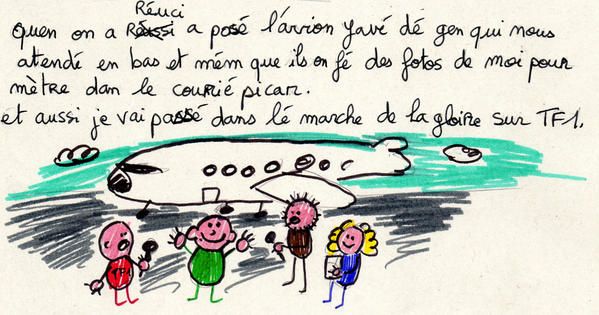 Réuci
quen on a Réussi a posé l'avion yavé dé gen qui nous
atendé en bas et mém que ils on fé des fotos de moi pour
mètre dan le courié picar.
et aussi je vai passé dans lé marche de la gloire sur TF1.
TF1